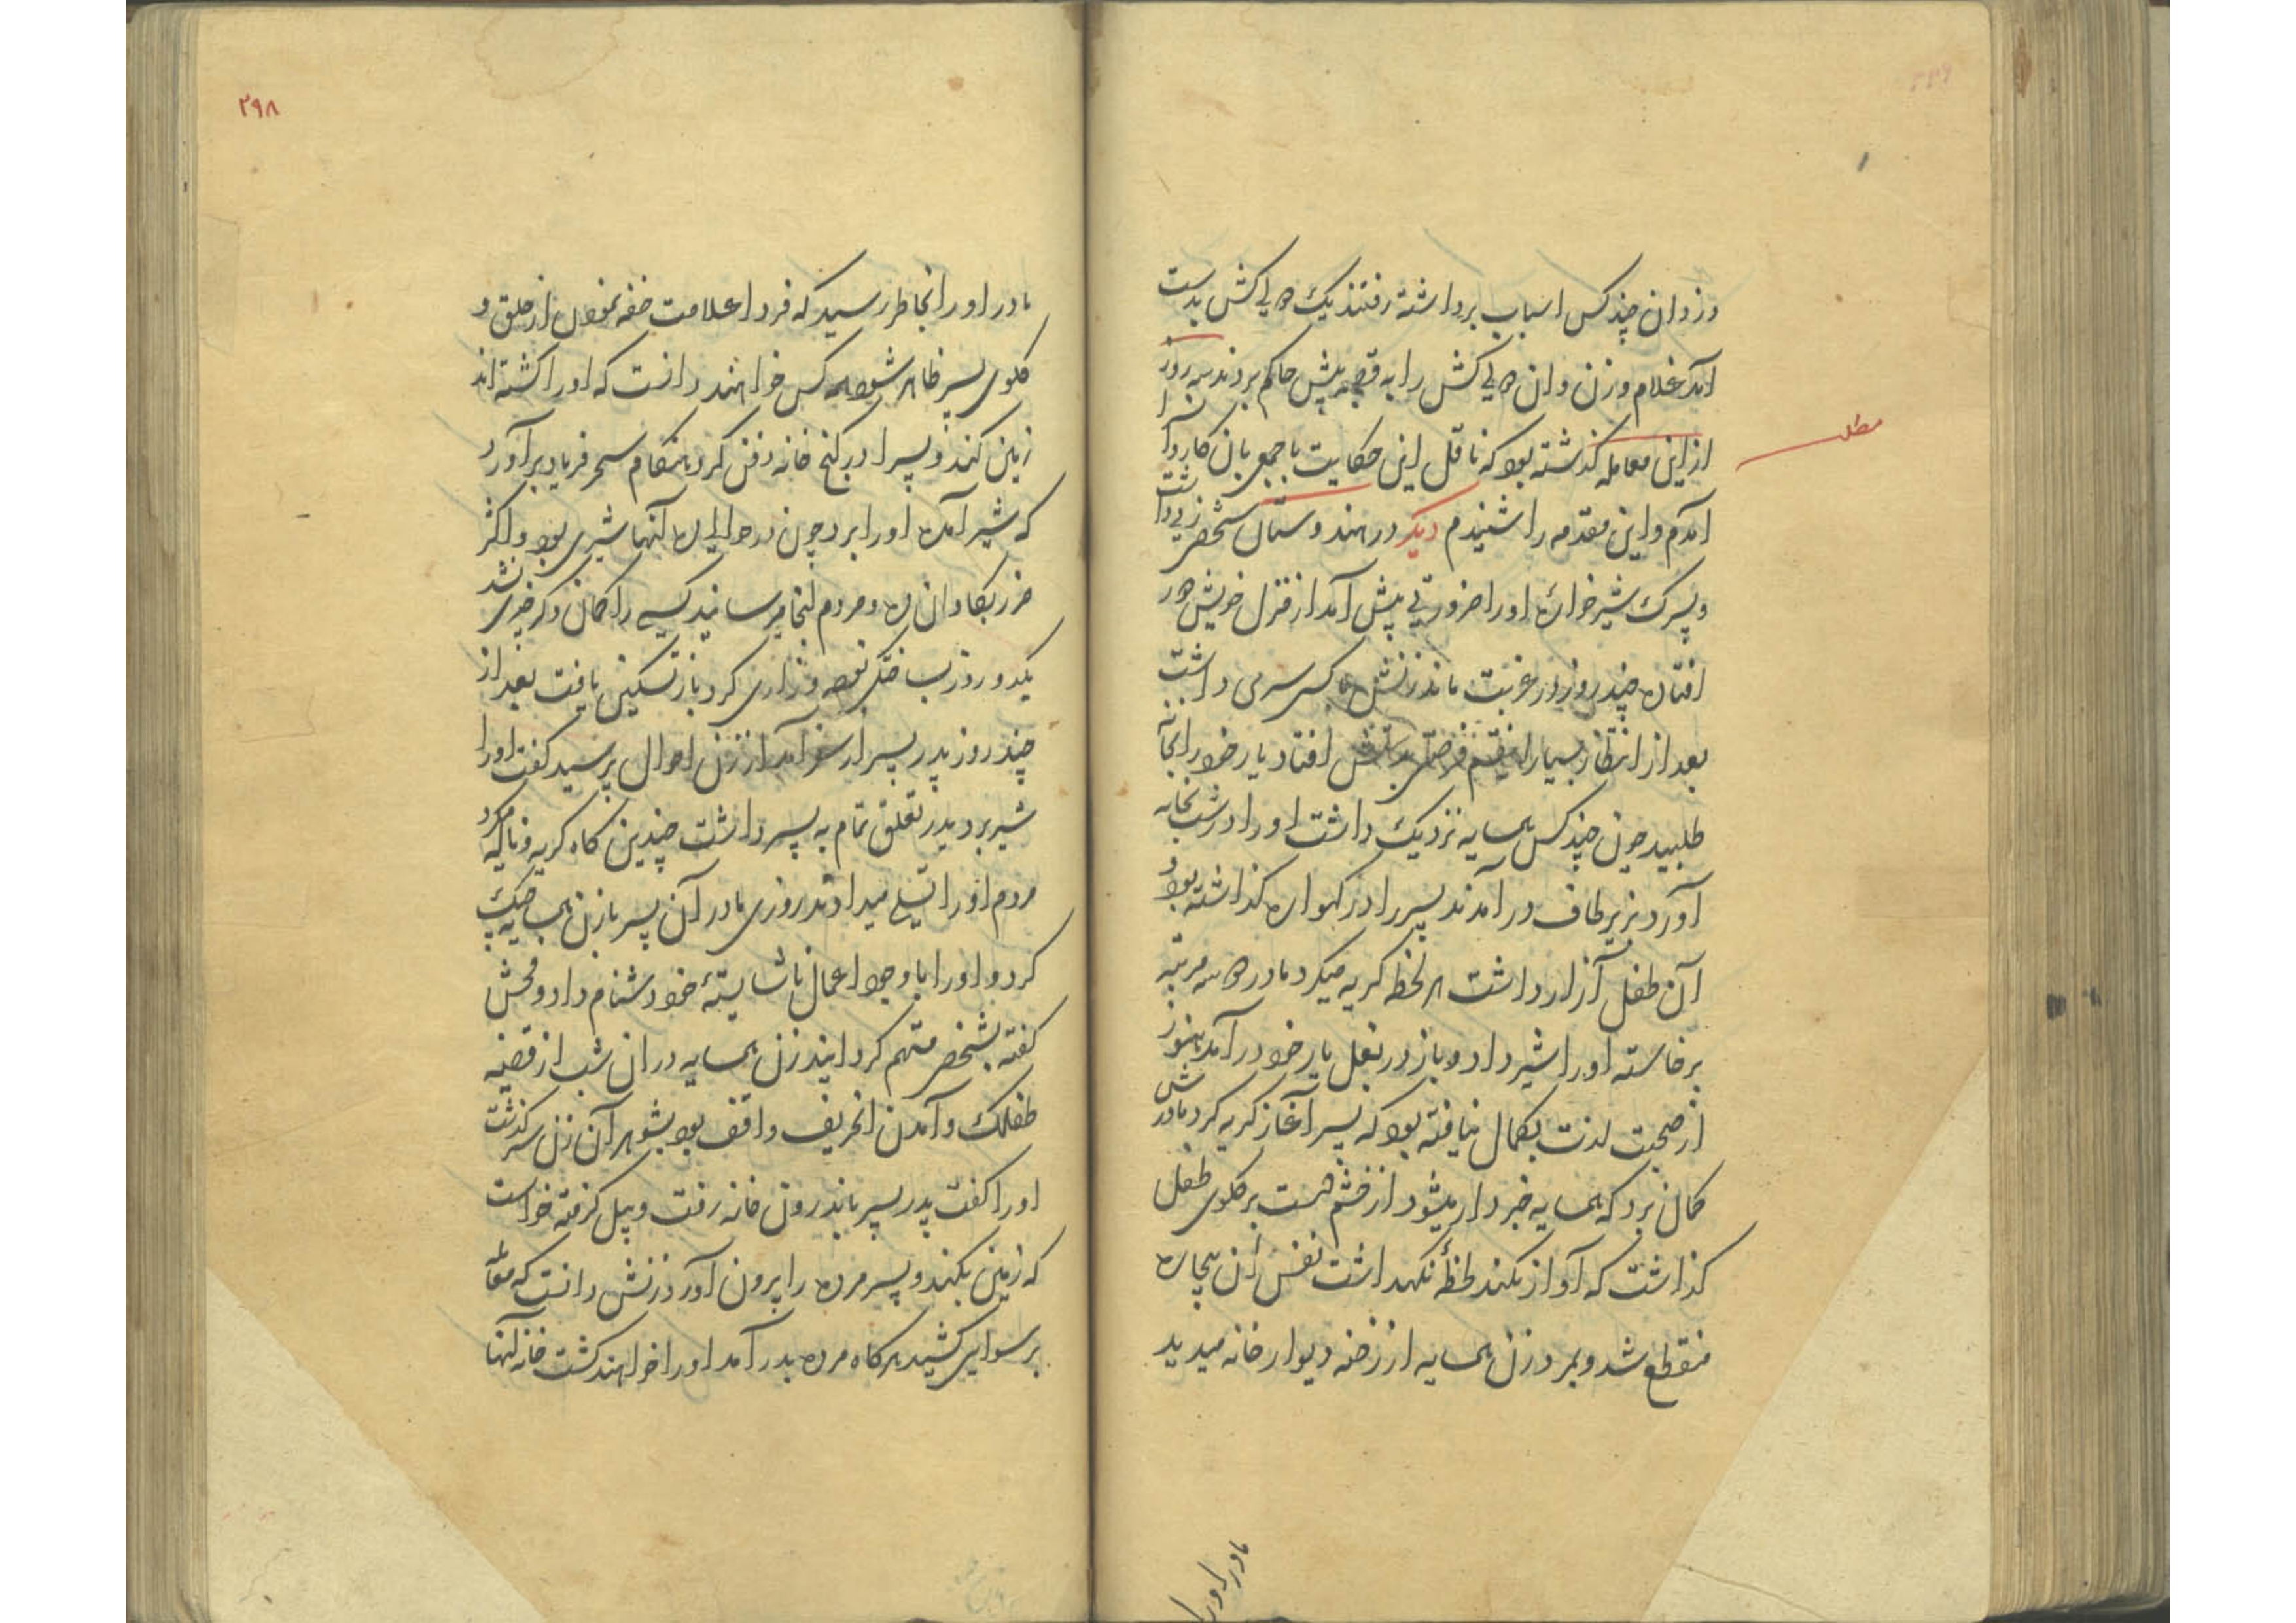 دزدان چند کس اسباب برداشته رفتند یک دلی کش بدست
آمد غلام وزن و ان دلی کش را به قصبه پیش حاکم بردند سه روز
ازین معامله گذشته بود که ناقل این حکایت با جمعی بان کاروانسرا
آمدم و این مقدمه را شنیدم دیگر در هندوستان شخصی زنی داشت
و پسرک شیرخواره او را ضرورتی پیش آمد از منزل خویش دور
افتاده چند روز در غربت ماند زنش با کسی سری داشت
بعد از انتظار بسیار فرصتی بدستش افتاد یار خود را بخانه
طلبید چون چند کس همسایه نزدیک داشت او را در شب بخانه
آورد بزیر لحاف در آمدند پسر را در گهواره گذاشته بود
آن طفل آزار داشت هر لحظه گریه میکرد مادر دو سه مرتبه
برخاسته او را شیر داد و باز در بغل یار خود در آمد هنوز
از صحبت لذت بکمال نیافته بود که پسر آغاز گریه کرد مادرش
گمان برد که همسایه خبردار میشود از خشم دست بر گلوی طفل
گذاشت که آواز نکند لحظهٔ نگهداشت نفس آن بیچاره
منقطع شد و بمرد زن همسایه از رخنه دیوار خانه میدید
مادر اورا
مطلب
۲۹۸
مادر او را بخاطر رسید که فردا علامت خفه نمودن از حلق و
گلوی پسر ظاهر شود هرکس خواهند دانست که او را کشته اند
زمین کند و پسر را در کنج خانه دفن کرد هنگام سحر فریاد برآورد
که شیر آمده او را برد چون در حوالی ده آنها شیری بود و اکثر
ضرر بگاوان ده و مردم آنجا میرسانید کسی را گمان دگر خوی نشد
یکدو روز بساختگی نوحه و زاری کرد باز تسکین یافت بعد از
چند روز پدر پسر از سفر آمد از زن احوال پرسید گفت او را
شیر برد پدر تعلق تمام به پسر داشت چندین گاه گریه و ناله میکرد
مردم او را تسلی میدادند روزی مادر آن پسر با زن همسایه جنگ
کرد و او را با وجود اعمال ناشایستهٔ خود دشنام داد و فحش
گفته بشخصی متهم گردانید زن همسایه در ان شب از قضیه
طفلک و آمدن انحریف واقف بود بشوهر آن زن سرگذشت
او را گفت پدر پسر باندرون خانه رفت و بیل گرفته خواست
که زمین بکند و پسر مرده را بیرون آورد زنش دانست که معامله
برسوایی کشید هرگاه مرده بدر آمد او را خواهند کشت خانه آنها